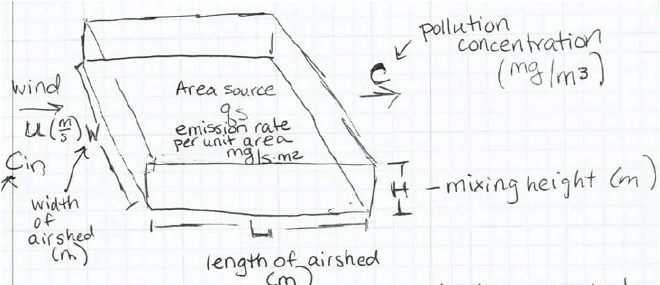 pollution
concentration
(mg/m3)
C
wind
u(m/s)
Cin
W
width
of
airshed
(m)
Area source
qs
emission rate
per unit area
mg/s·m2
H
- mixing height (m)
L
length of airshed
(m)